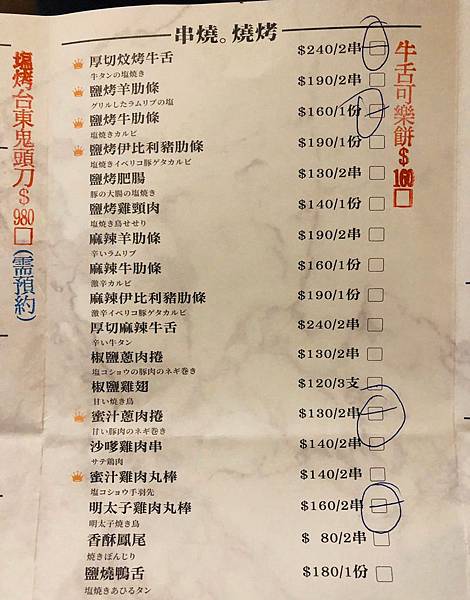 串燒。燒烤
厚切炆烤牛舌 $240/2串
牛タンの塩焼き
鹽烤羊肋條 $190/2串
グリルしたラムリブの塩
鹽烤牛肋條 $160/1份
塩焼きカルビ
鹽烤伊比利豬肋條 $190/1份
塩焼きイベリコ豚ゲタカルビ
鹽烤肥腸 $130/2串
豚の大腸の塩焼き
鹽烤雞頸肉 $140/1份
塩焼き鳥せせり
麻辣羊肋條 $190/2串
辛いラムリブ
麻辣牛肋條 $160/1份
激辛カルビ
麻辣伊比利豬肋條 $190/1份
激辛イベリコ豚ゲタカルビ
厚切麻辣牛舌 $240/2串
辛い牛タン
椒鹽蔥肉捲 $130/2串
塩コショウの豚肉のネギ巻き
椒鹽雞翅 $120/3支
甘い焼き鳥
蜜汁蔥肉捲 $130/2串
甘い豚肉のネギ巻き
沙嗲雞肉串 $140/2串
サテ鶏肉
蜜汁雞肉丸棒 $140/2串
塩コショウ手羽先
明太子雞肉丸棒 $160/2串
明太子焼き鳥
香酥鳳尾 $ 80/2串
焼きぼんじり
鹽燒鴨舌 $180/1份
塩焼きあひるタン
牛舌可樂餅$160
塩烤台東鬼頭刀$980(需預約)